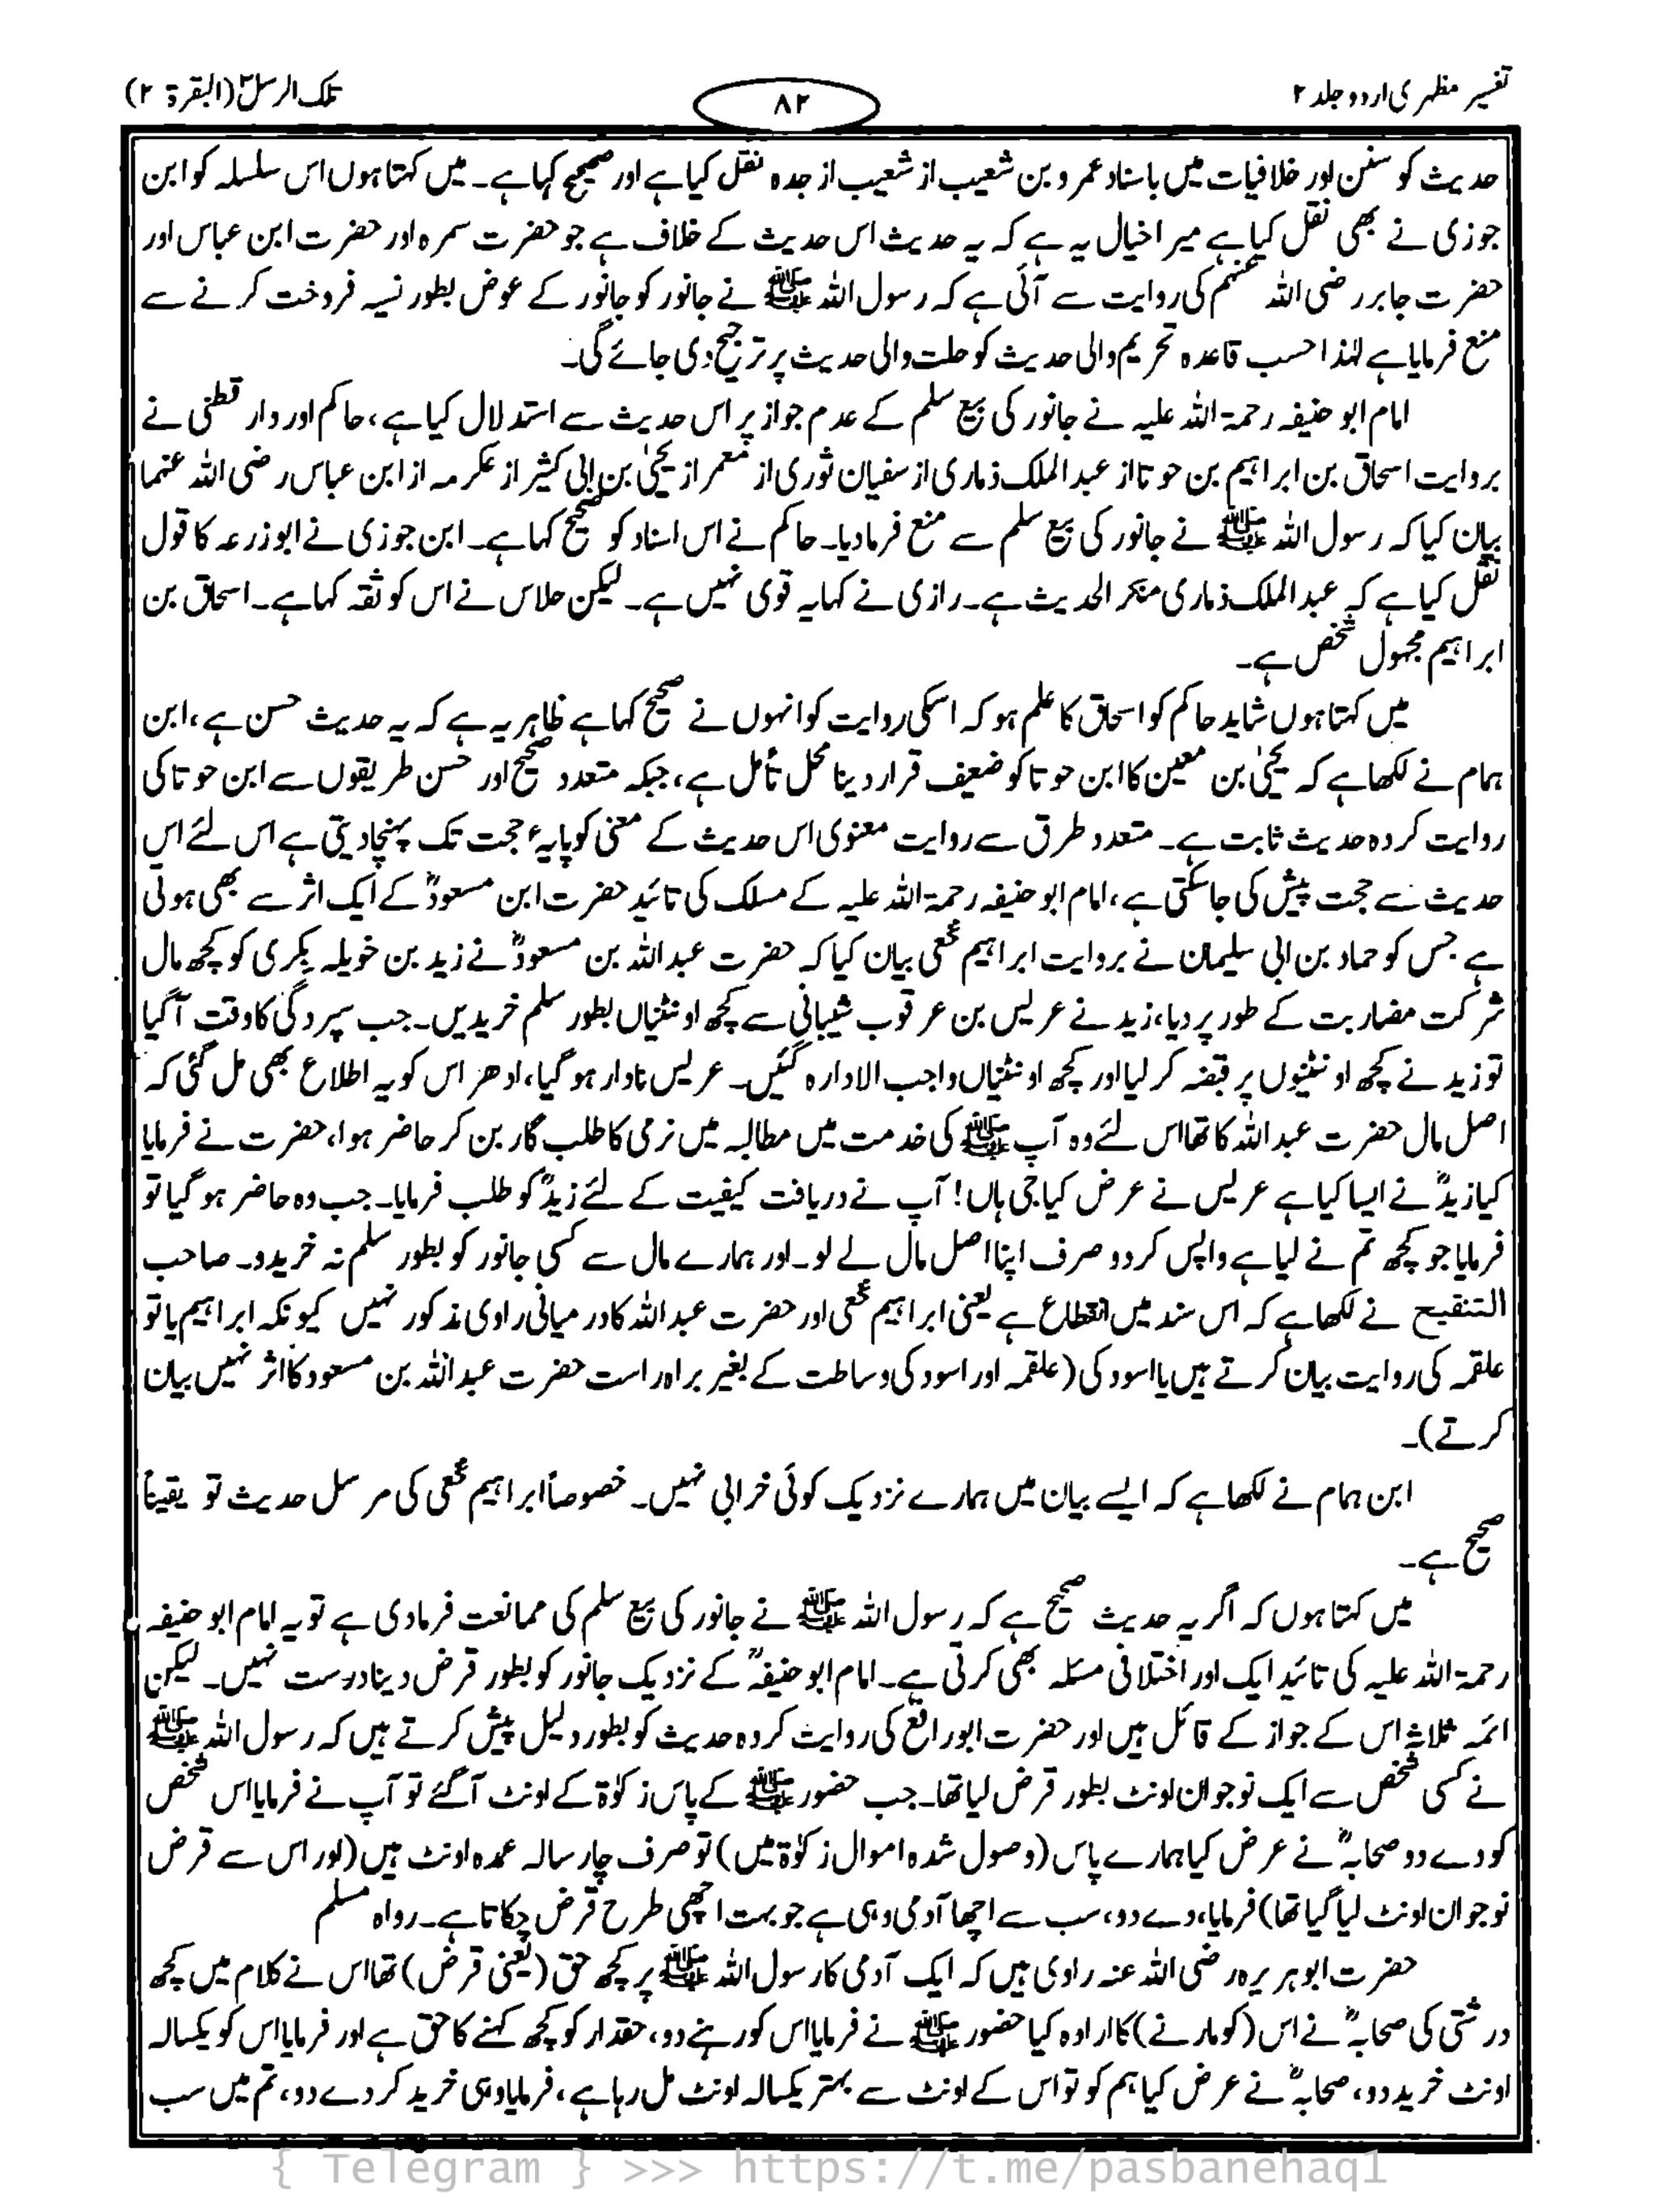 تفسیر مظہری اردو جلد ۲
۸۲
تلک الرسل ۳ (البقرۃ ۲)
حدیث کو سنن اور خلافیات میں باسناد عمرو بن شعیب از شعیب از جدہ نقل کیا ہے اور صحیح کہا ہے۔ میں کہتا ہوں اس سلسلہ کو ابن
جوزی نے بھی نقل کیا ہے میرا خیال یہ ہے کہ یہ حدیث اس حدیث کے خلاف ہے جو حضرت سمرہ اور حضرت ابن عباس اور
حضرت جابر رضی اللہ عنہم کی روایت سے آئی ہے کہ رسول اللہ ﷺ نے جانور کو جانور کے عوض بطور نسیہ فروخت کرنے سے
منع فرمایا ہے لہٰذا حسب قاعدہ تحریم والی حدیث کو حلت والی حدیث پر ترجیح دی جائے گی۔
امام ابو حنیفہ رحمۃ اللہ علیہ نے جانور کی بیع سلم کے عدم جواز پر اس حدیث سے استدلال کیا ہے، حاکم اور دار قطنی نے
بروایت اسحاق بن ابراہیم بن حوتا از عبدالملک ذماری از سفیان ثوری از معمر از یحیٰی بن ابی کثیر از عکرمہ از ابن عباس رضی اللہ عنہما
بیان کیا کہ رسول اللہ ﷺ نے جانور کی بیع سلم سے منع فرما دیا۔ حاکم نے اس اسناد کو صحیح کہا ہے۔ ابن جوزی نے ابوزرعہ کا قول
نقل کیا ہے کہ عبدالملک ذماری منکر الحدیث ہے۔ رازی نے کہا یہ قوی نہیں ہے۔ لیکن حلاس نے اس کو ثقہ کہا ہے۔ اسحاق بن
ابراہیم مجہول شخص ہے۔
میں کہتا ہوں شاید حاکم کو اسحاق کا علم ہو کہ اسکی روایت کو انہوں نے صحیح کہا ہے ظاہر یہ ہے کہ یہ حدیث حسن ہے، ابن
ہمام نے لکھا ہے کہ یحیٰی بن معین کا ابن حوتا کو ضعیف قرار دینا محل تأمل ہے، جبکہ متعدد صحیح اور حسن طریقوں سے ابن حوتا کی
روایت کردہ حدیث ثابت ہے۔ متعدد طرق سے روایت معنوی اس حدیث کے معنی کو پایۂ حجت تک پہنچا دیتی ہے اس لئے اس
حدیث سے حجت پیش کی جاسکتی ہے، امام ابو حنیفہ رحمۃ اللہ علیہ کے مسلک کی تائید حضرت ابن مسعودؓ کے ایک اثر سے بھی ہوتی
ہے جس کو حماد بن ابی سلیمان نے بروایت ابراہیم نخعی بیان کیا کہ حضرت عبداللہ بن مسعودؓ نے زید بن خویلہ بکری کو کچھ مال
شرکت مضاربت کے طور پر دیا، زید نے عریس بن عرقوب شیبانی سے کچھ اونٹنیاں بطور سلم خریدیں۔ جب سپردگی کا وقت آگیا
تو زید نے کچھ اونٹنیوں پر قبضہ کر لیا اور کچھ اونٹنیاں واجب الادا رہ گئیں۔ عریس نادار ہو گیا، ادھر اس کو یہ اطلاع بھی مل گئی کہ
اصل مال حضرت عبداللہ کا تھا اس لئے وہ آپ ﷺ کی خدمت میں مطالبہ میں نرمی کا طلب گار بن کر حاضر ہوا، حضرت نے فرمایا
کیا زیدؓ نے ایسا کیا ہے عریس نے عرض کیا جی ہاں! آپ نے دریافت کیفیت کے لئے زیدؓ کو طلب فرمایا۔ جب وہ حاضر ہو گیا تو
فرمایا جو کچھ تم نے لیا ہے واپس کر دو صرف اپنا اصل مال لے لو۔ اور ہمارے مال سے کسی جانور کو بطور سلم نہ خریدو۔ صاحب
التنقیح نے لکھا ہے کہ اس سند میں انقطاع ہے یعنی ابراہیم نخعی اور حضرت عبداللہ کا درمیانی راوی مذکور نہیں کیونکہ ابراہیم یا تو
علقمہ کی روایت بیان کرتے ہیں یا اسود کی (علقمہ اور اسود کی وساطت کے بغیر براہ راست حضرت عبداللہ بن مسعود کا اثر نہیں بیان
کرتے)۔
ابن ہمام نے لکھا ہے کہ ایسے بیان میں ہمارے نزدیک کوئی خرابی نہیں۔ خصوصاً ابراہیم نخعی کی مرسل حدیث تو یقیناً
صحیح ہے۔
میں کہتا ہوں کہ اگر یہ حدیث صحیح ہے کہ رسول اللہ ﷺ نے جانور کی بیع سلم کی ممانعت فرما دی ہے تو یہ امام ابو حنیفہ
رحمۃ اللہ علیہ کی تائید ایک اور اختلافی مسئلہ بھی کرتی ہے۔ امام ابو حنیفہؒ کے نزدیک جانور کو بطور قرض دینا درست نہیں۔ لیکن
ائمہ ثلاثہ اس کے جواز کے قائل ہیں اور حضرت ابورافع کی روایت کردہ حدیث کو بطور دلیل پیش کرتے ہیں کہ رسول اللہ ﷺ
نے کسی شخص سے ایک نوجوان اونٹ بطور قرض لیا تھا۔ جب حضور ﷺ کے پاس زکوٰۃ کے اونٹ آگئے تو آپ نے فرمایا اس شخص
کو دے دو صحابہؓ نے عرض کیا ہمارے پاس (وصول شدہ اموال زکوٰۃ میں) تو صرف چار سالہ عمدہ اونٹ ہیں (اور اس سے قرض
نوجوان اونٹ لیا گیا تھا) فرمایا، دے دو، سب سے اچھا آدمی وہی ہے جو بہت اچھی طرح قرض چکاتا ہے۔ رواہ مسلم
حضرت ابوہریرہ رضی اللہ عنہ راوی ہیں کہ ایک آدمی کا رسول اللہ ﷺ پر کچھ حق (یعنی قرض) تھا اس نے کلام میں کچھ
درشتی کی صحابہؓ نے اس (کو مارنے) کا ارادہ کیا حضور ﷺ نے فرمایا اس کو رہنے دو، حقدار کو کچھ کہنے کا حق ہے اور فرمایا اس کو یکسالہ
اونٹ خرید دو، صحابہؓ نے عرض کیا ہم کو تو اس کے اونٹ سے بہتر یکسالہ اونٹ مل رہا ہے، فرمایا وہی خرید کر دے دو، تم میں سب
{ Telegram } >>> https://t.me/pasbanehaq1